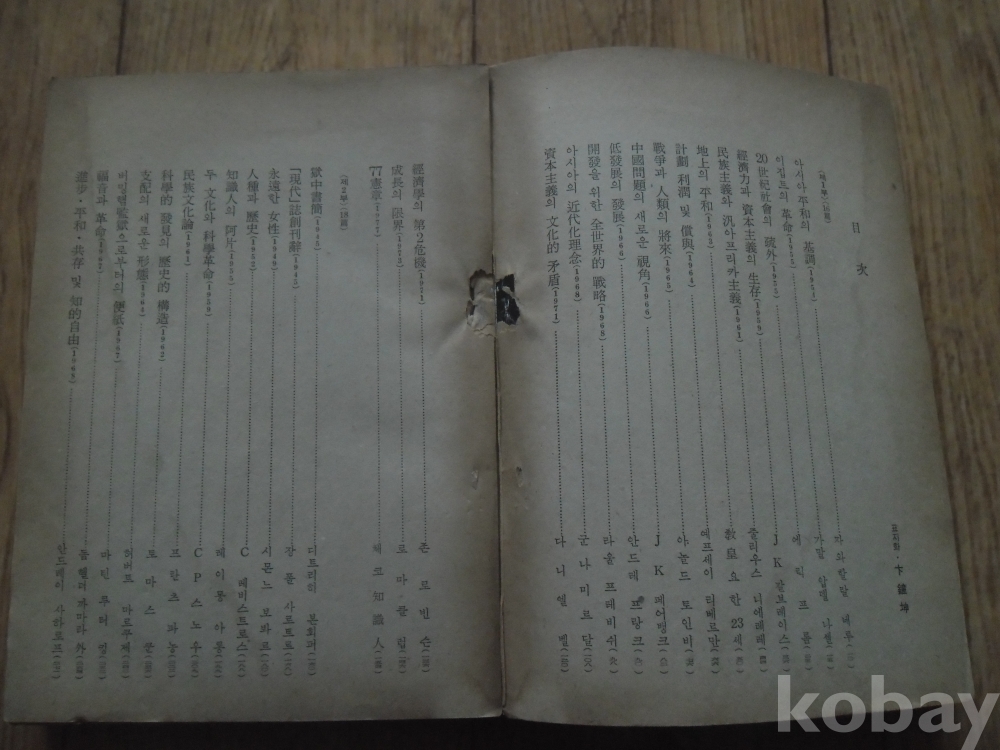 目次
아시아·平和의 基調
이집트의 革命
20世紀社會의 疏外
자와할랄 네루
가말 압델 나셀
에릭 프롬
經濟力과 資本主義의 生存(1959)
J K 갈브레이스
民族主義와 汎아프리카主義(1961)
줄리우스 니에레레
地上의 平和(1963)
敎皇 요한 23세
計劃 利潤 및 償與
에프세이 리베르만
戰爭과 人類의 將來
아놀드 토인비
中國問題의 새로운 視角(1966)
J K 페어뱅크
低發展의 發展(1966)
안드레 프랑크
開發을 위한 全世界的 戰略(1968)
라울 프레비쉬
아시아의 近代化理念(1968)
군나 미르달
資本主義의 文化的 矛盾(1971)
다니엘 벨
표지화·
經濟學의 第2危機(1971)
존 로빈슨
成長의 限界(1972)
로마클럽
77憲章(1977)
체코知識人
獄中書簡(1945)
디트리히 본회퍼
「現代」誌創刊辭(1945)
장 폴 사르트르
永遠한 女性(1949)
시몬느 보봐르
人種과 歷史(1952)
C 레비스트로스
知識人의 阿片(1955)
레이몽 아롱
두 文化와 科學革命(1959)
C P 스노우
民族文化論(1961)
프란츠 파농
科學的 發見의 歷史的 構造(1962)
토마스 쿤
支配의 새로운 形態
허버트 마르쿠제
버밍햄監獄으로부터의 便紙
마틴 루터 킹
福音과 革命
돔 헬더 까마라 外
進步·平和·共存 및 知的自由(1968)
안드레이 사하로프
kobay